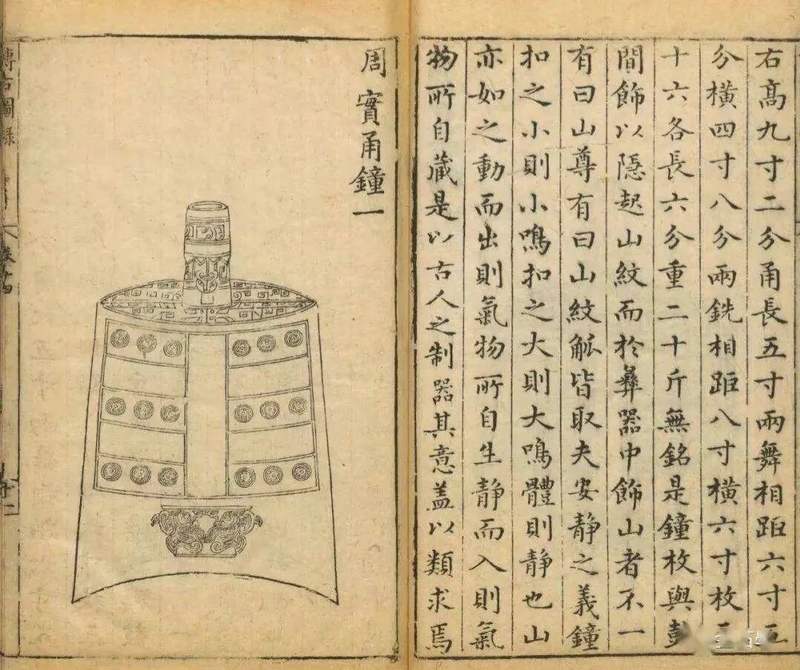 右高九寸二分甬長五寸兩舞相距六寸五
分橫四寸八分兩銑相距八寸橫六寸枚三
十六各長六分重二十斤無銘是鐘枚與鼓
間飾以隱起山紋而於彝器中飾山者不一
有曰山尊有曰山紋觚皆取夫安靜之義鐘
扣之小則小鳴扣之大則大鳴體則靜也山
亦如之動而出則氣物所自生靜而入則氣
物所自藏是以古人之制器其意蓋以類求焉
周實甬鐘一
博古圖錄